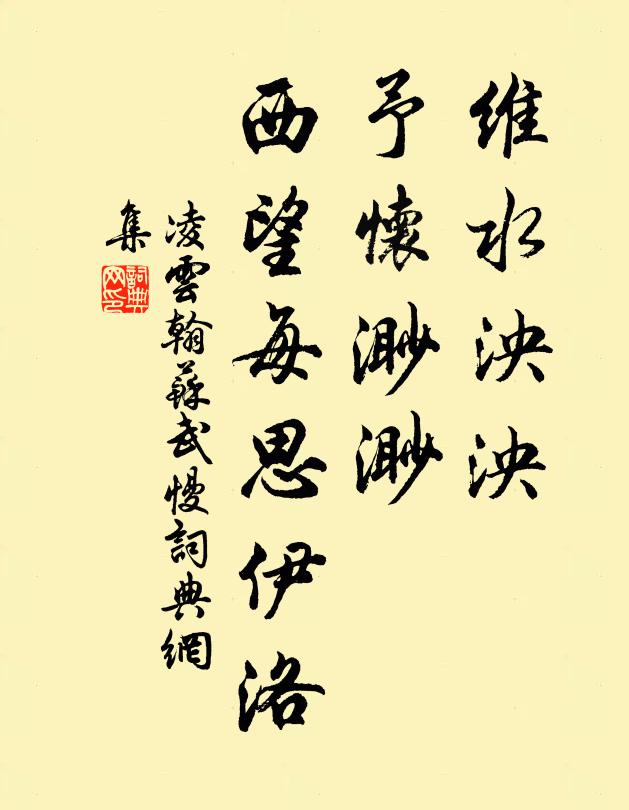 維水泱泱
予懷渺渺
西望每思伊洛
凌雲翰蘇武慢詞典網
集
詞典
网印